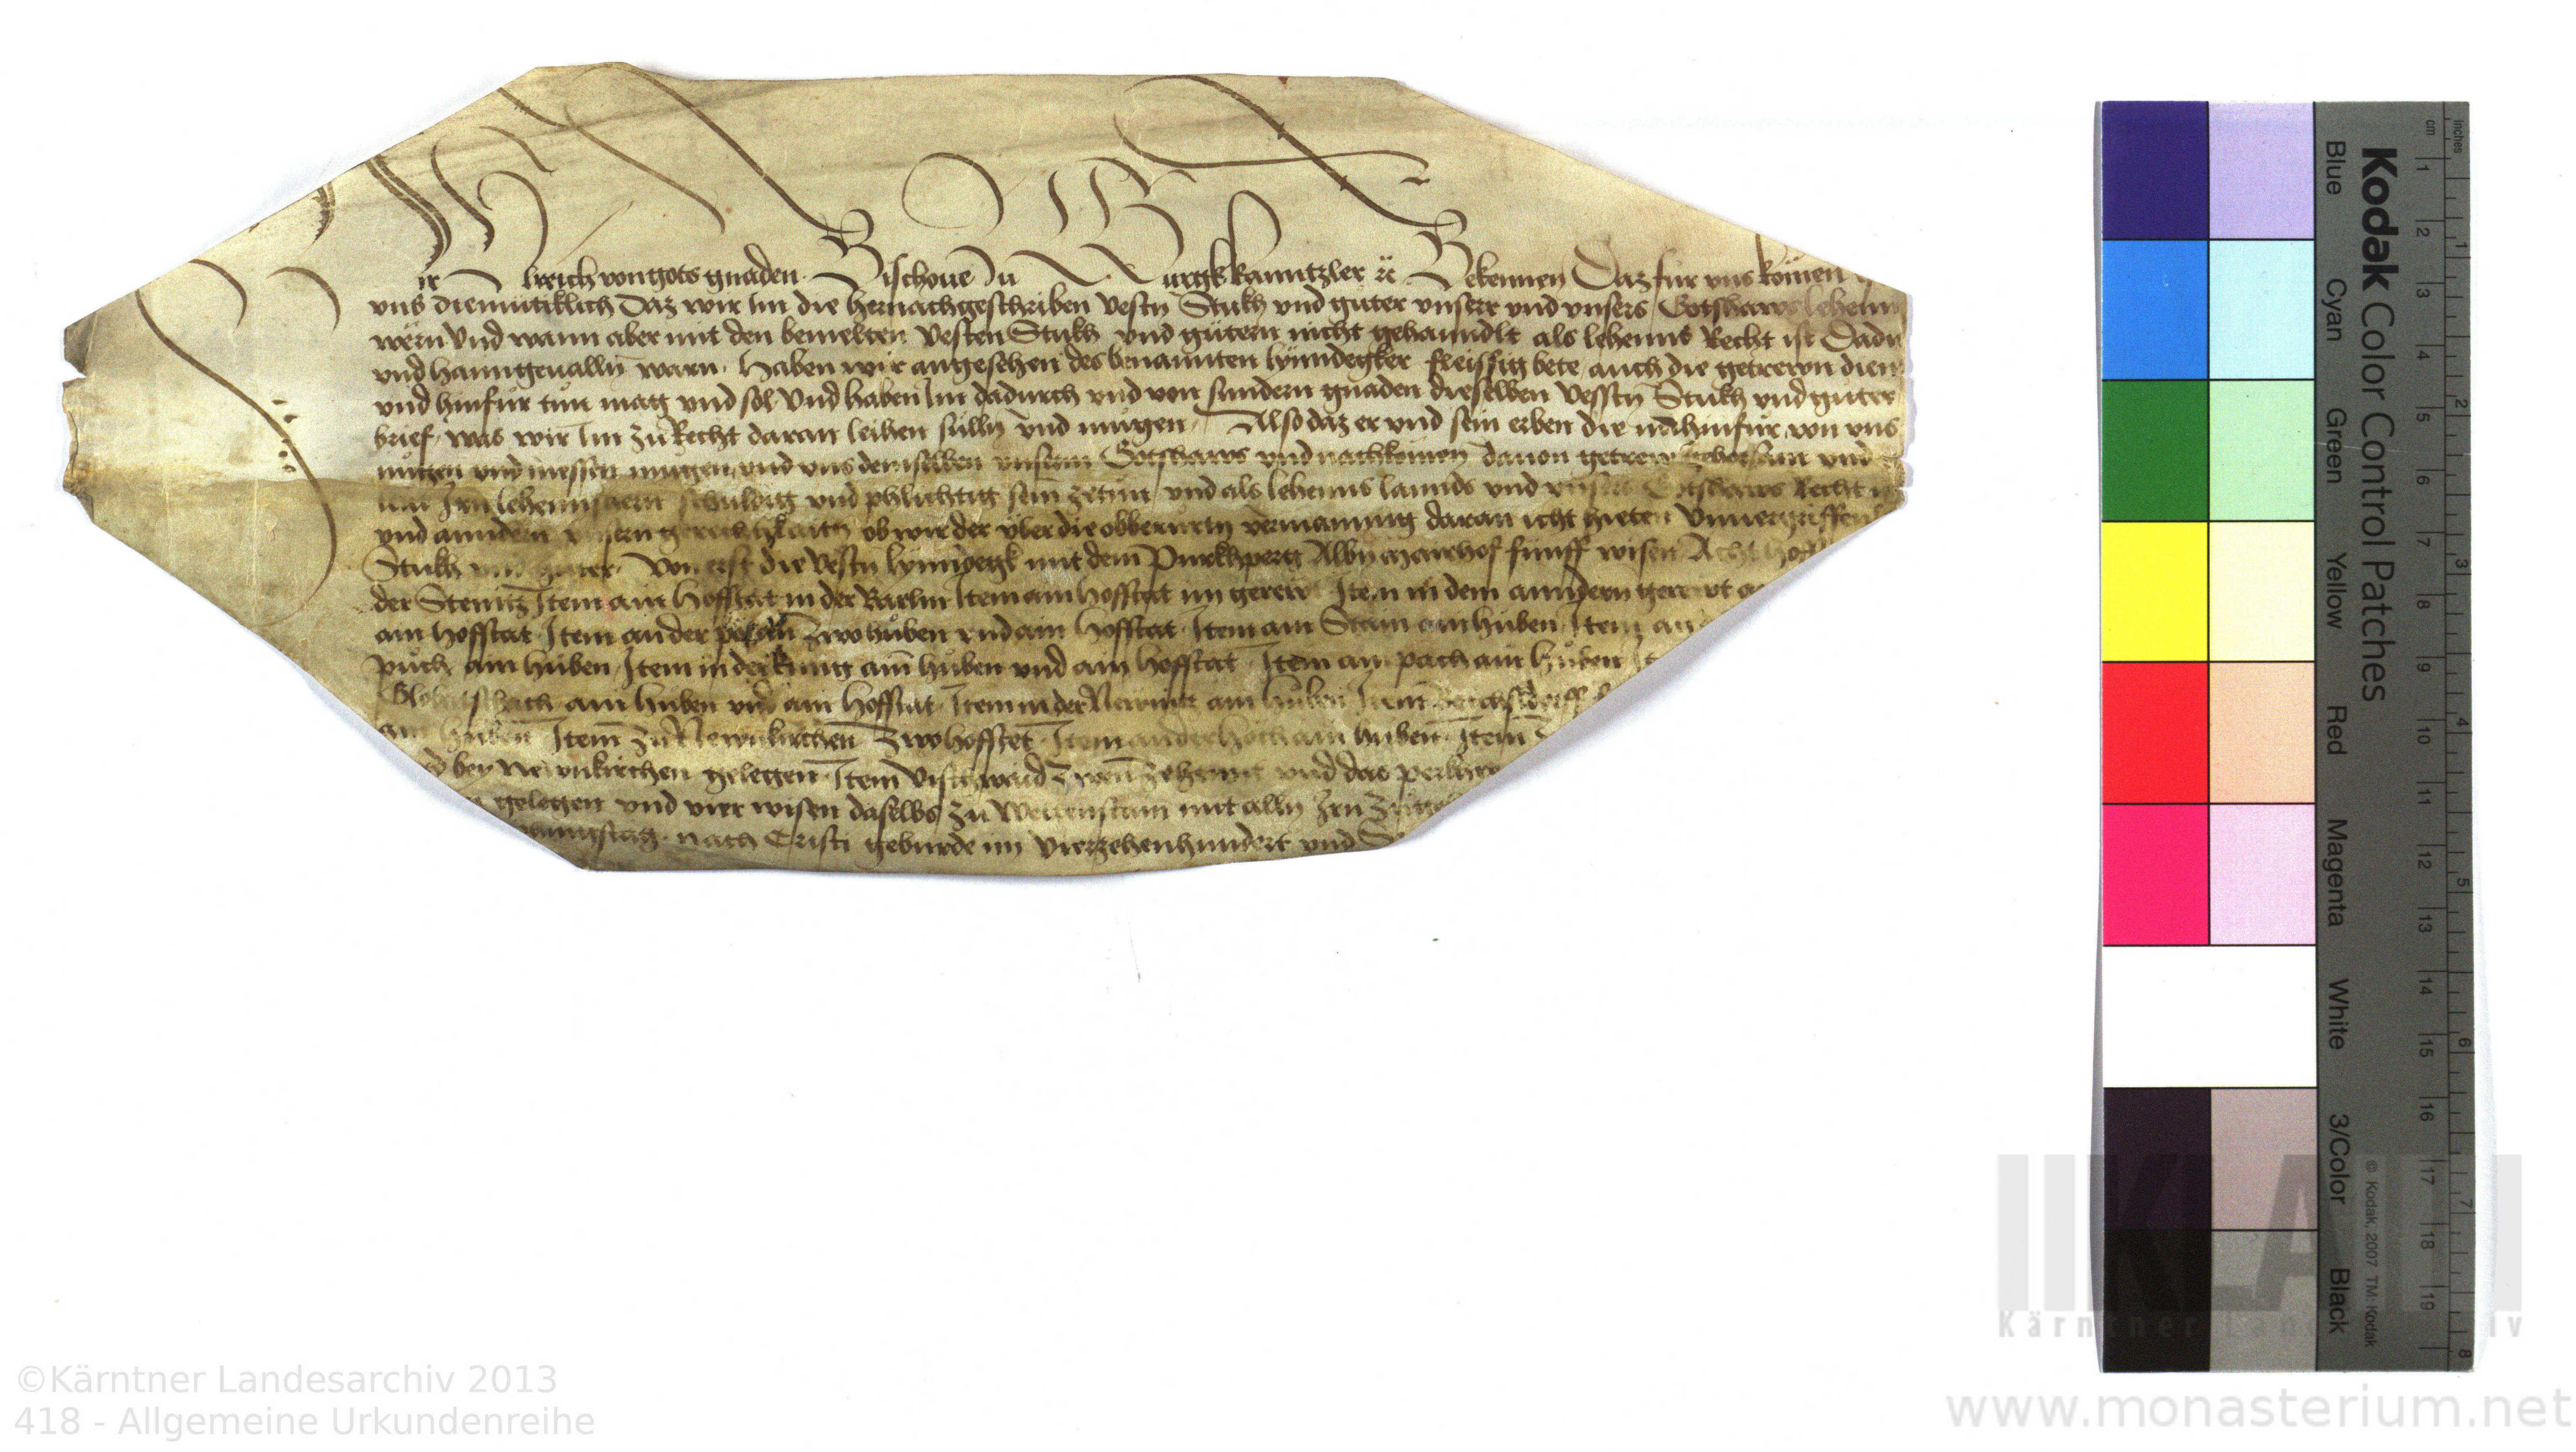 Wir Ulrich von gots gnaden Bischoue Zu Gurgk kanntzler ꝛc Bekennen Daz fur vns komen
vns diemutiklich Daz wir Im die hernachgeschriben Vestn Stukh vnd guter vnserr vnd vnsers Gotshaws lehenn
wern Vnd wann aber mit den bemelten Vesten Stukh vnd gutern nicht gehanndlt als lehenns Recht ist Dadu
vnd haimgeualln warn. Haben wir angesehen des benannten lynndegker fleissig bete auch die getrewn dien
vnd hinfur tun mag vnd sol Vnd haben Im dadurch vnd von sundern gnaden dieselben Vesstn Stukh vnd guter
brief, was wir Im zu Recht daran leihen sulln vnd mugen, Also daz er vnd sein erben die nu hinfur von vns
nutzen vnd niessen mugen, vnd vns demselben vnserm Gotshaws vnd nachkomen dauon getrew gehorsam vnd
irn lehennhern schuldig vnd phlichtig sein zetun vnd als lehenns lannds vnd vnsers Gotshaws Recht
vnd anndern vnsern gerechtikaitn ob wir der vber die obberurtn vermanung daran icht hieten Vnuergriffen
Stukh vnd guter. Von erst die Vestn lynndegk mit dem Purkhperg Albn Mairhof funff wisen Acht hof
der Stenitz Item ain Hofstat in der Item ain hofstat im gerewt Item in dem anndern gerewt
ain hofstat. Item an der zwo huben vnd ain hofstat. Item am Stain ain huben, Item an
puch ain huben, Item in der ain huben vnd ain hofstat. Item am pach ain huben
ain huben vnd ain hofstat, Item in der ain huben Item
ain huben Item zu Newnkirchen zwo hofstet. Item an der Hoch ain huben. Item
bey Newnkirchen gelegen. Item Vischwaid zwen zehennt vnd das perkh
gelegen vnd vier wisen daselbs zu Weitenstain mit alln Irn
nach Cristi geburde im Vierzehenhundert vnd
Kodak Color Control Patches
Blue Cyan Green Yellow Red Magenta White 3/Color Black
© Kodak, 2007 TM: Kodak
cm 1 2 3 4 5 6 7 8 9 10 11 12 13 14 15 16 17 18 19
inches 1 2 3 4 5 6 7 8
KLA
Kärntner Landesarchiv
©Kärntner Landesarchiv 2013
418 - Allgemeine Urkundenreihe
www.monasterium.net